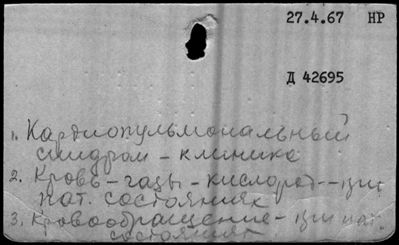 27.4.67 НР
Д 42695
1. Кардиопульмональный
синдром - клиника
2. Кровь - газы - кислород -- при
пат. состояниях
3. Кровообращение - при пат.
состояниях